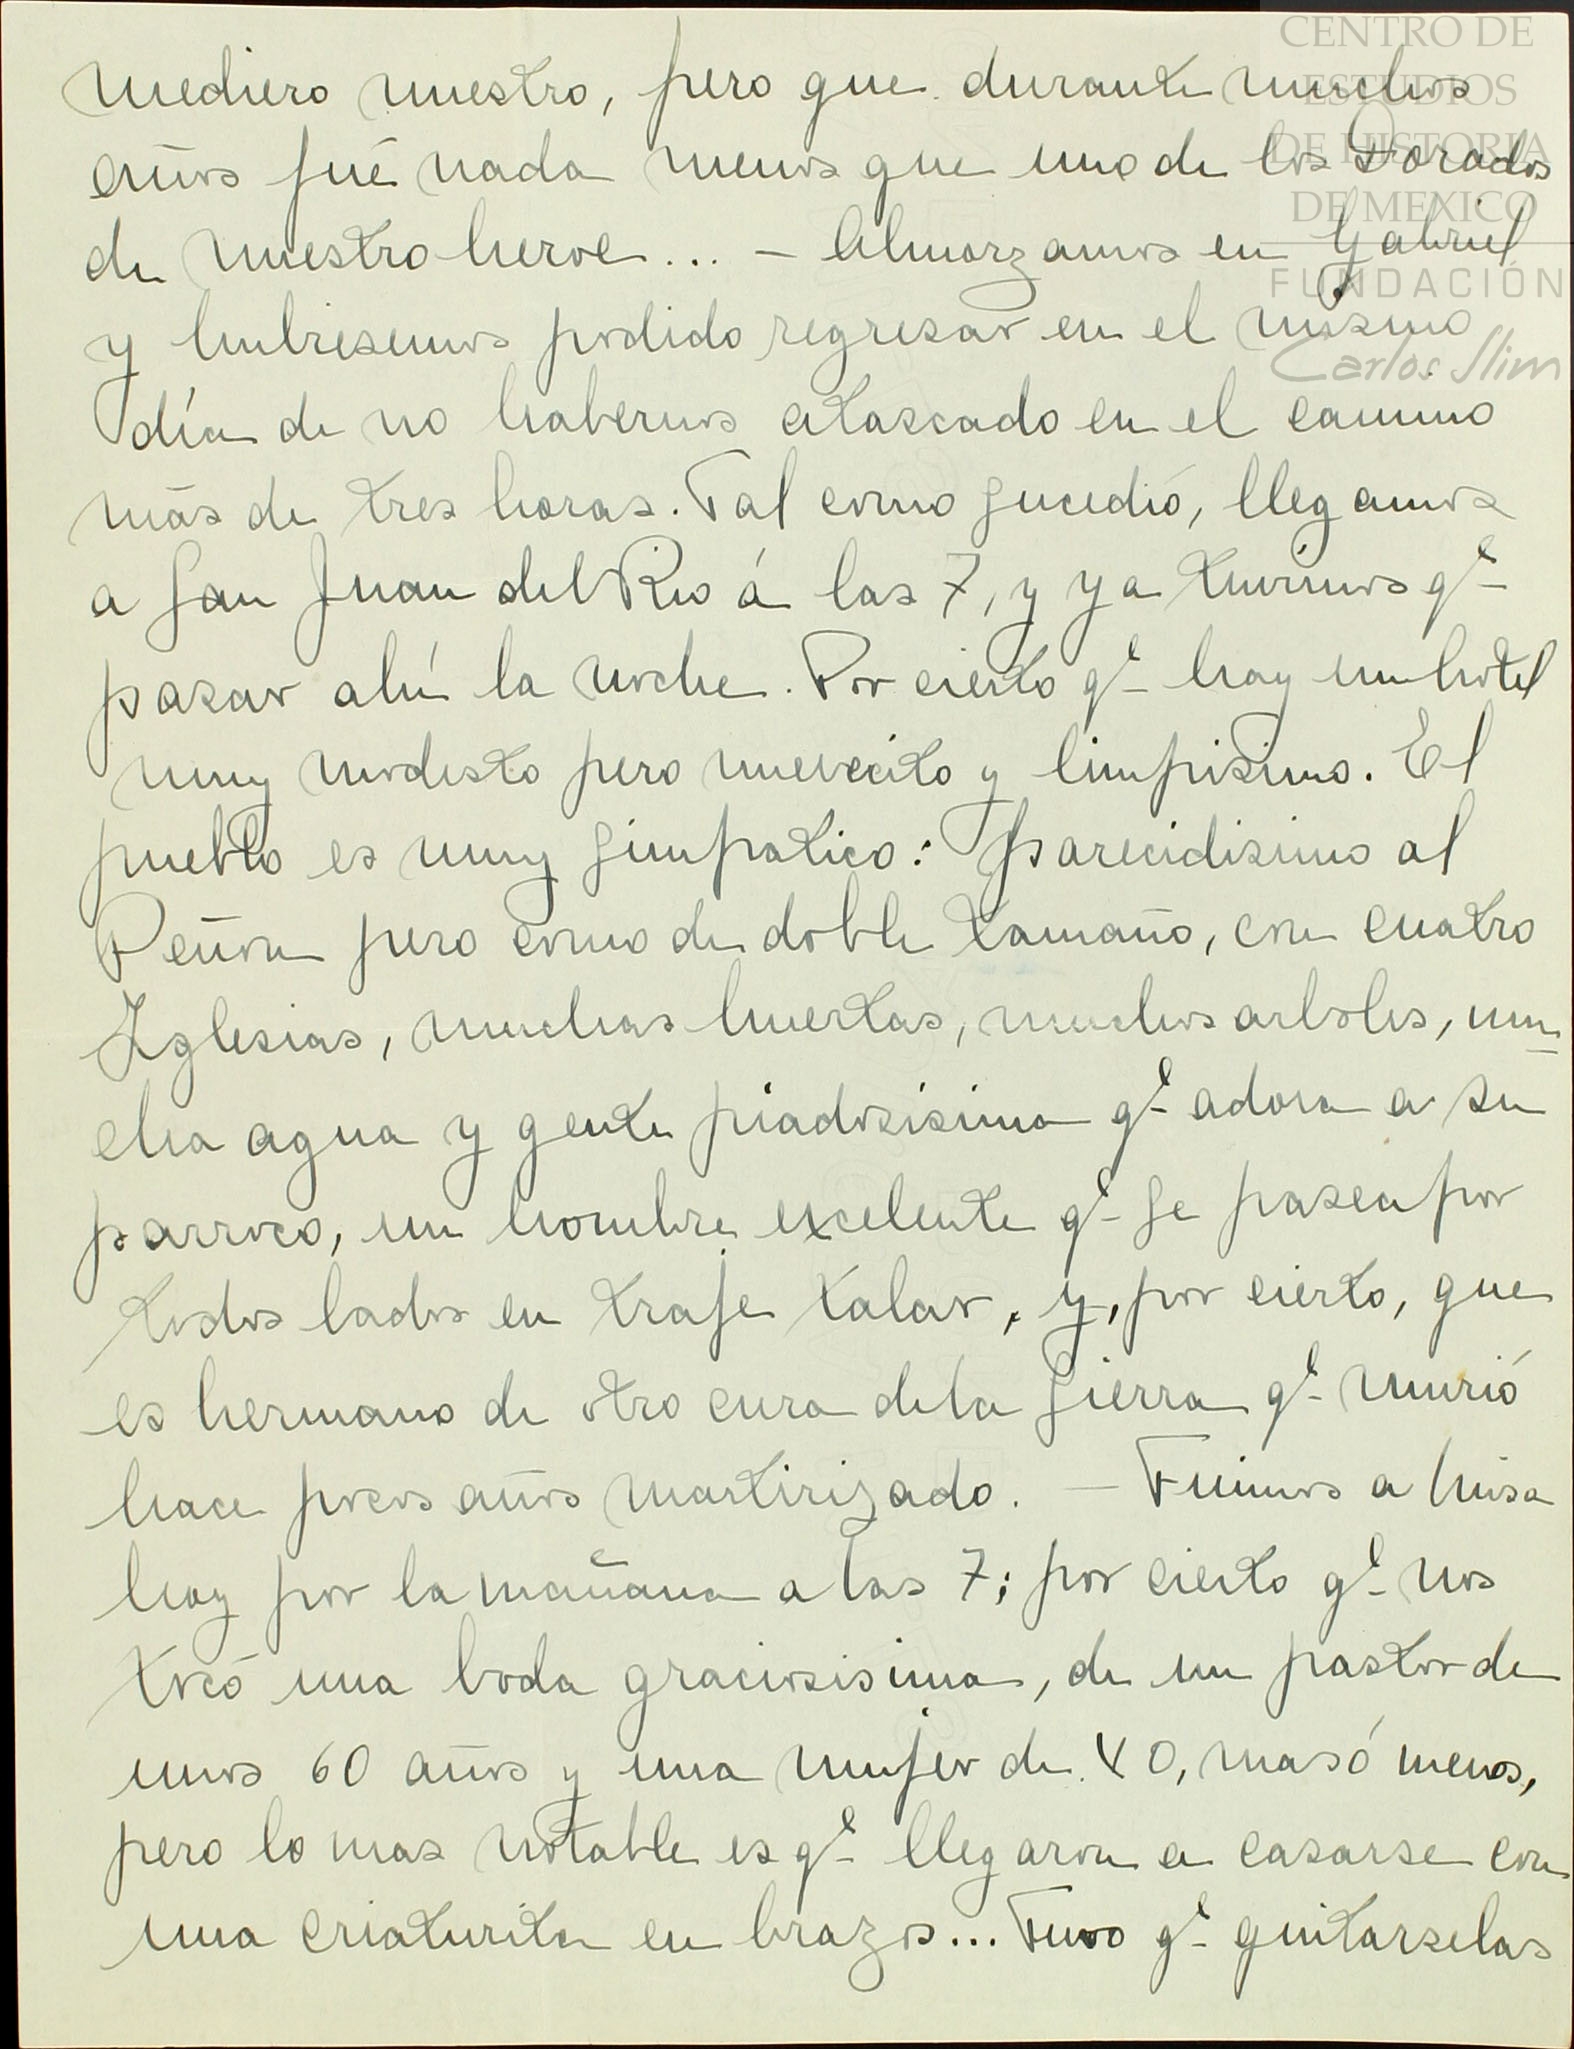 CENTRO DE
ESTUDIOS
DE HISTORIA
DE MEXICO
FUNDACIÓN
Carlos Slim
mediero nuestro, pero que durante muchos
años fué nada menos que uno de los Dorados
de nuestro heroe... - Almorzamos en Gabriel
y hubiesemos podido regresar en el mismo
día de no habernos atascado en el camino
más de tres horas. Tal como sucedió, llegamos
a San Juan del Rio á las 7, y ya tuvimos qe
pasar ahí la noche. Por cierto qe hay un hotel
muy modesto pero nuevecito y limpisimo. El
pueblo es muy simpatico: parecidisimo al
Peñon pero como de doble tamaño, con cuatro
Iglesias, muchas huertas, muchos arboles, mu-
cha agua y gente piadosisima qe adora a su
parroco, un hombre excelente qe se pasea por
todos lados en traje talar, y, por cierto, que
es hermano de otro cura de la Sierra qe murió
hace pocos años martirizado. - Fuimos a Misa
hoy por la mañana a las 7; por cierto qe nos
tocó una boda graciosisima, de un pastor de
unos 60 años y una mujer de 40, mas ó menos,
pero lo mas notable es qe llegaron a casarse con
una criaturita en brazos... Tuvo qe quitarselas